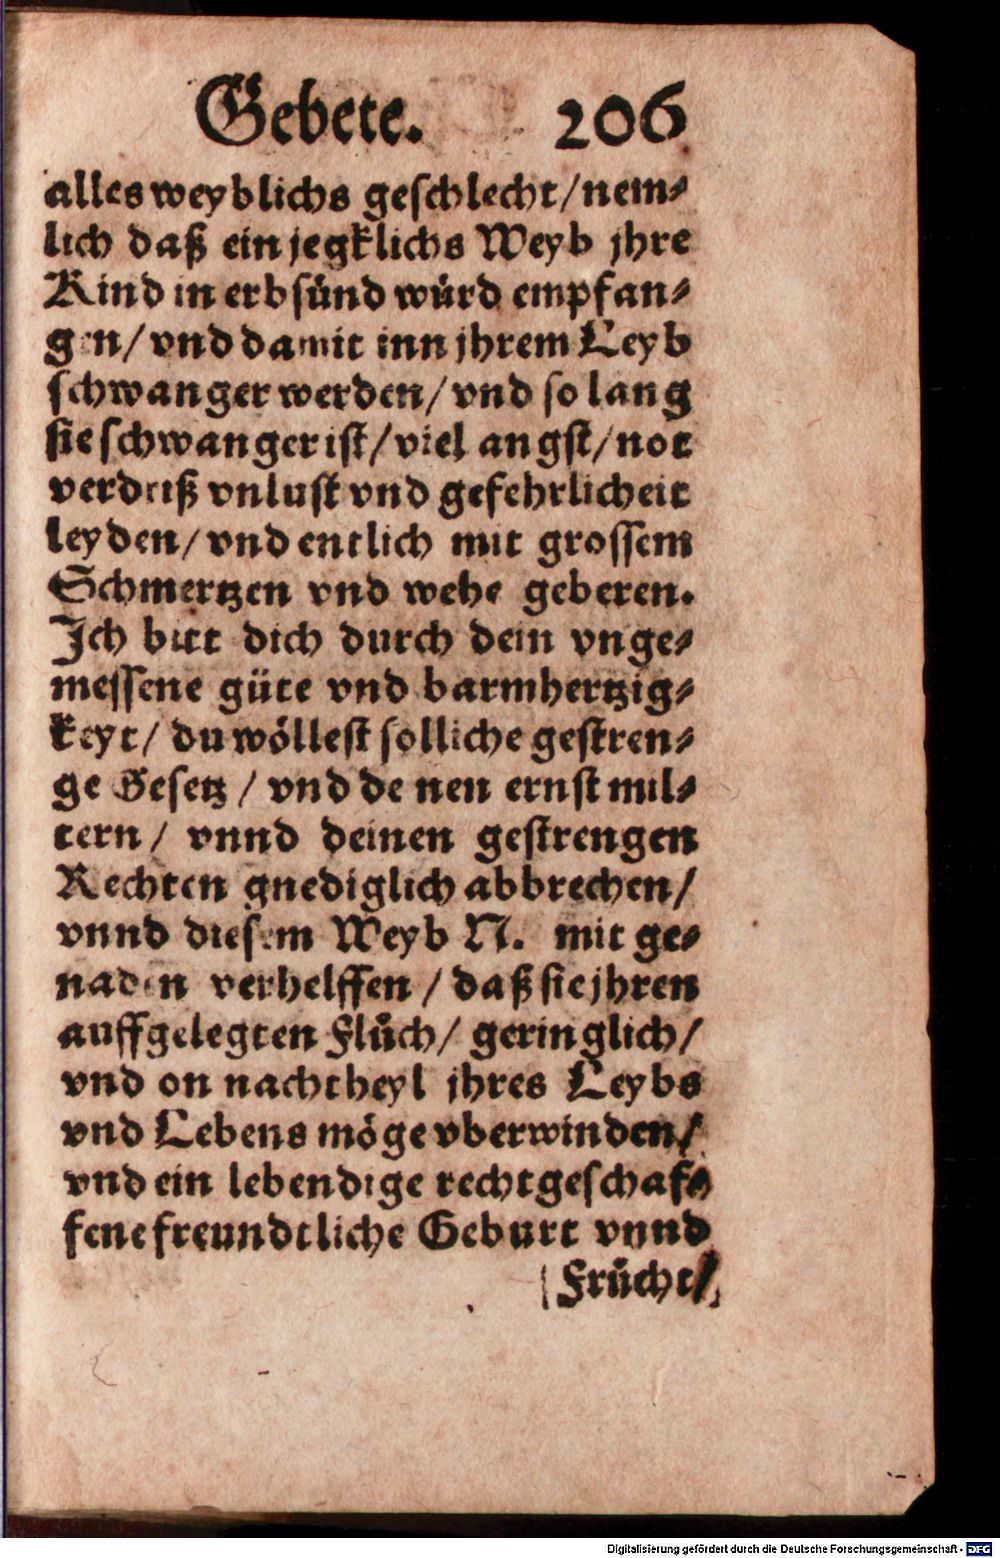 Gebete. 206
alles weyblichs geschlecht/ nem⸗
lich daß ein jegklichs Weyb jhre
Kind in erbsůnd wůrd empfan⸗
gen/ vnd damit inn jhrem Leyb
schwanger werden/ vnd so lang
sie schwanger ist/ viel angst/ not
verdriß vnlust vnd gefehrlicheit
leyden/ vnd entlich mit grossem
Schmertzen vnd wehe geberen.
Ich bitt dich durch dein vnge⸗
messene güte vnd barmhertzig⸗
keyt/ du wöllest solliche gestren⸗
ge Gesetz / vnd de nen ernst mil⸗
tern/ vnnd deinen gestrengen
Rechten gnediglich abbrechen/
vnnd diesem Weyb N. mit ge⸗
naden verhelffen / daß sie jhren
auffgelegten Flůch/ geringlich/
vnd on nachtheyl jhres Leybs
vnd Lebens möge vberwinden/
vnd ein lebendige rechtgeschaf⸗
fene freundtliche Geburt vnnd
Frůcht/
Digitalisierung gefördert durch die Deutsche Forschungsgemeinschaft - DFG